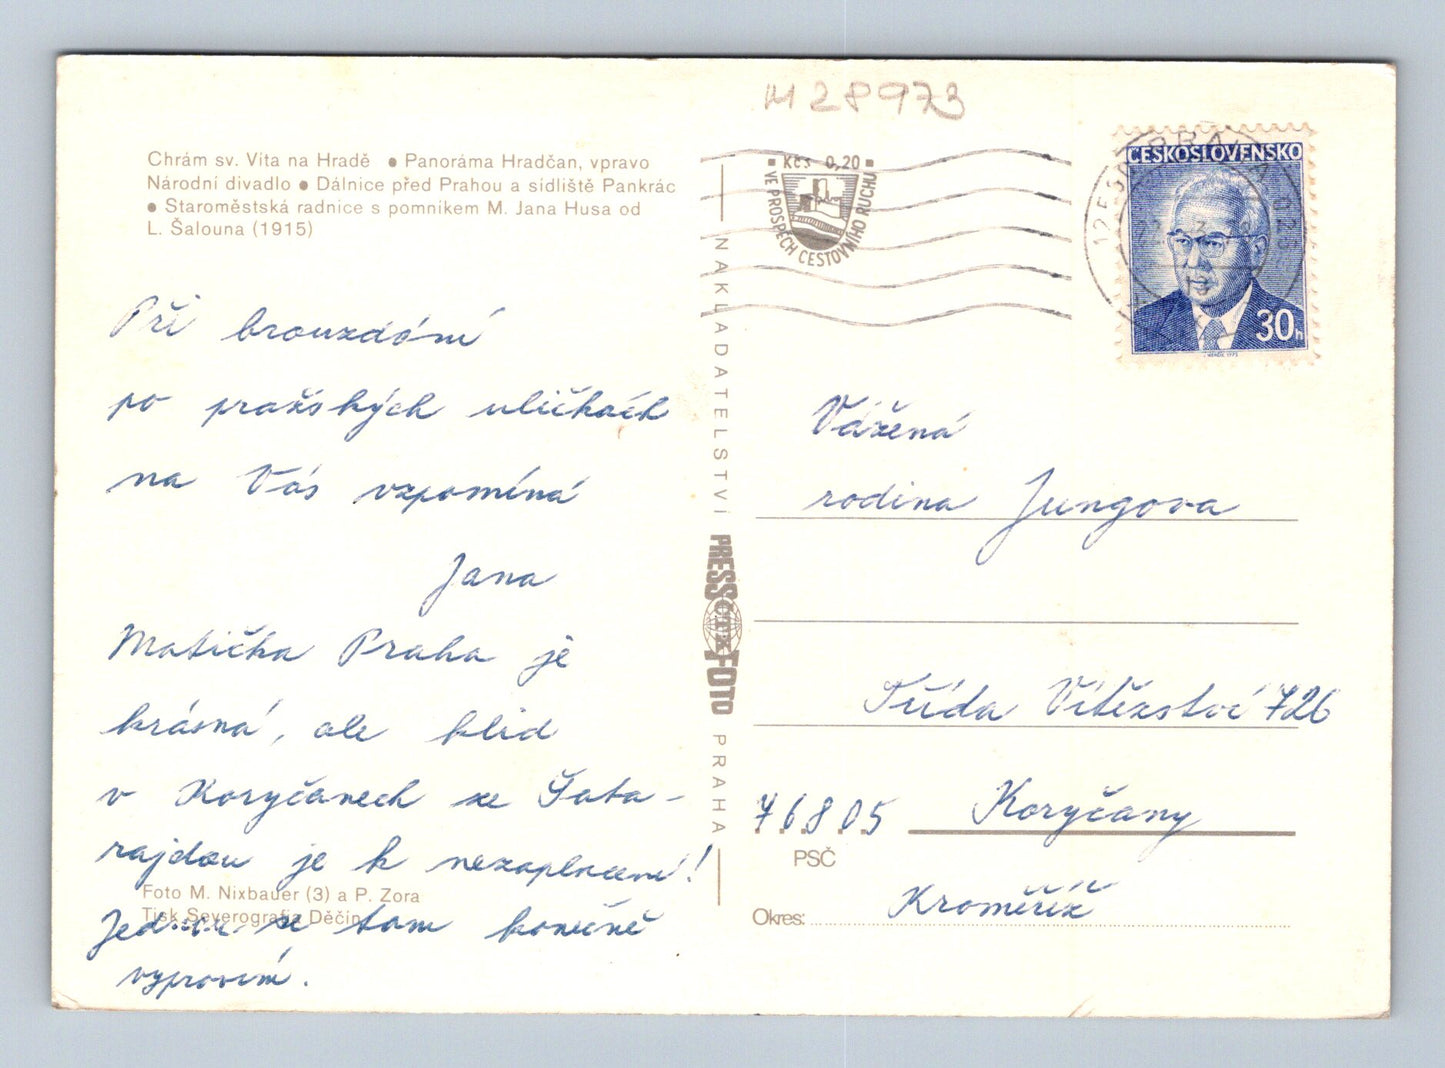 M 28973
Chrám sv. Víta na Hradě ● Panoráma Hradčan, vpravo
Národní divadlo ● Dálnice před Prahou a sídliště Pankrác
● Staroměstská radnice s pomníkem M. Jana Husa od
L. Šalouna (1915)
Při brouzdání
po pražských uličkách
na Vás vzpomíná
Jana
Matička Praha je
krásná, ale klid
v Koryčanech se Šata-
rajdou je k nezaplacení!
Foto M. Nixbauer (3) a P. Zora
Tisk Severografia Děčín
se tam konečně
vypravím.
NAKLADATELSTVÍ
PRESSFOTO
ČTK
PRAHA
Kčs 0,20
VE PROSPĚCH CESTOVNÍHO RUCHU
PRAHA
ČESKOSLOVENSKO
30h
Vážená
rodina Jungova
Třída Vítězství 726
76805 Koryčany
PSČ
Okres: Kroměříž